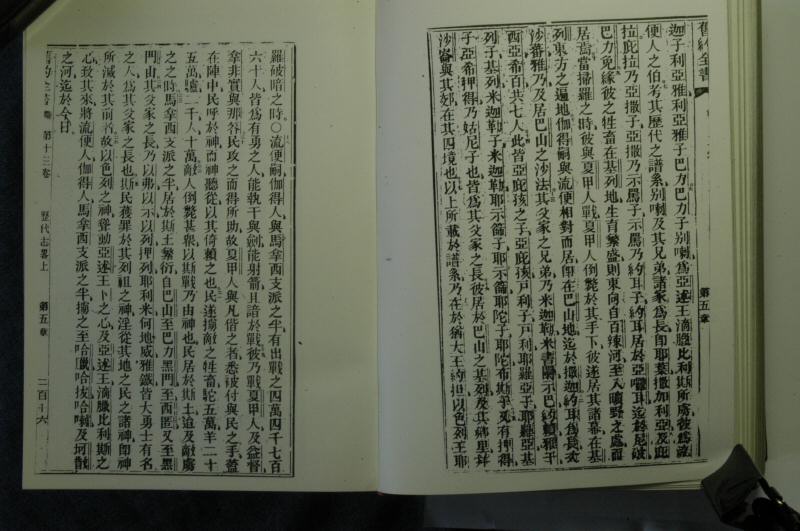 舊約全書
第五章
迦子利亞雅利亞雅子巴力巴力子別喇爲亞述王滴臘比利斯所虜彼爲流
便人之伯若其歷代之譜系別喇及其兄弟諸家爲長卽耶葉撒加利亞及庇
拉庇拉乃亞撒子亞撒乃示罵子示罵乃約耳子約耳居於亞囉耳迄於尼破
巴力免緣彼之牲畜在基列地生育繁盛則東向自百辣河至入曠野之處而
居焉當掃羅之時彼與夏甲人戰夏甲人倒斃於其手下彼遂居其諸幕在基
列東方之遍地伽得嗣與流便相對而居卽在巴山地迄於撒迦約耳爲長次
沙番雅乃及居巴山之沙法其父家之兄弟乃米迦勒米書
西亞希百共七人此皆亞庇孩之子亞庇孩戸利子戸利耶羅亞子耶羅亞基
列子基列米迦勒子米迦勒耶示篩子耶示篩耶陀子耶陀布斯子又有押得
子亞希押得乃姑尼子也皆爲其父家之長彼居於巴山之基列及其鄉里并
沙崙與其郊在其四境也以上所載於譜系乃在於猶大王約担以色列王耶
羅破暗之時○流便嗣伽得人與馬拿西支派之半有出戰之四萬四千七百
六十人皆爲有勇之人能執干與劍能射箭且諳於戰彼乃戰夏甲人及
拿非實與那答民攻之而得所助故夏甲人與凡偕之者悉被付與民之手蓋
在陣中民呼於神而神聽從以其倚賴之也民遂擄敵之牲畜駝五萬羊二十
五萬驢二千人十萬敵人倒斃甚衆以斯戰乃由神也民居於斯土迨及敵虜
之之時馬拿西支派之半居於斯土繁衍自巴山至巴力黑門至西匿又至黑
門山其父家之長也乃以弗以示以列押列耶利米何地威雅鐵皆大勇士有名
之人爲其父家之長也斯民獲罪於其列祖之神淫從其地之民之諸神卽神
所滅於其前者故以色列之神聳動亞述王卜之心及亞述王滴臘比利斯之
心致其來將流便人伽得人馬拿西支派之半擄之至哈
之河迄於今日
舊約全書 第十三卷 歷代志畧上 第五章 二百十六